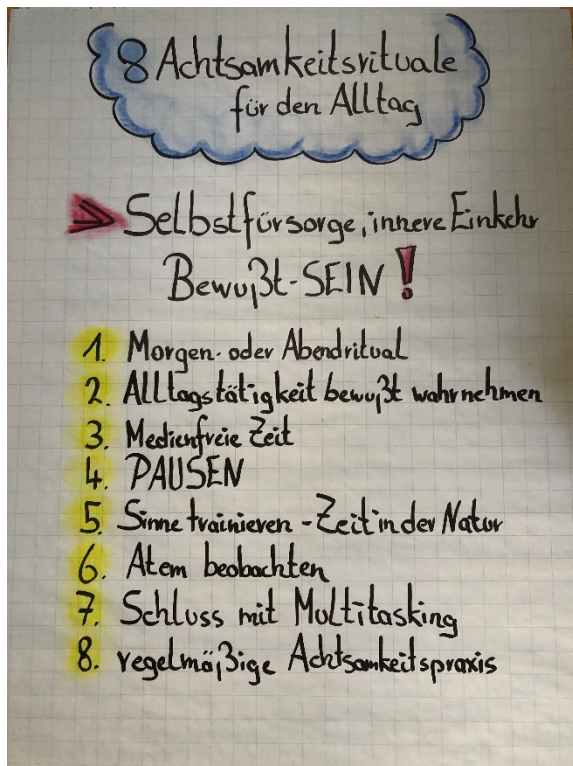 8 Achtsamkeitsrituale
für den Alltag
Selbstfürsorge, innere Einkehr
Bewußt-SEIN!
1. Morgen- oder Abendritual
2. Alltagstätigkeit bewußt wahrnehmen
3. Medienfreie Zeit
4. PAUSEN
5. Sinne trainieren - Zeit in der Natur
6. Atem beobachten
7. Schluss mit Multitasking
8. regelmäßige Achtsamkeitspraxis